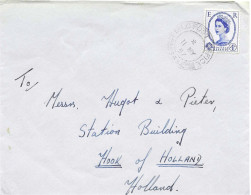 To/
Messrs, Hugot & Pieter,
Station Building
HOOK OF HOLLAND
Holland.
E R